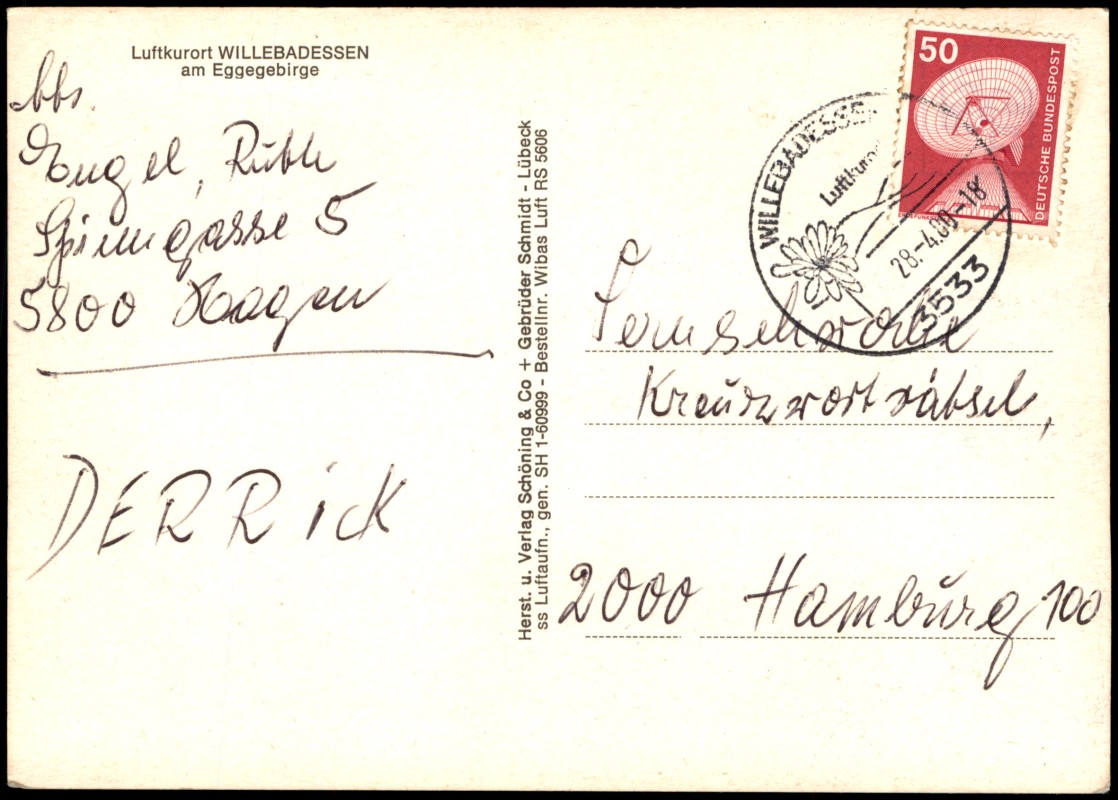 Luftkurort WILLEBADESSEN
am Eggegebirge
Abs.
Engel, Ruth
5800 Hagen
DERRicK
Herst. u. Verlag Schöning & Co + Gebrüder Schmidt - Lübeck
ss Luftaufn., gen. SH 1-60999 - Bestellnr. Wibas Luft RS 5606
50
DEUTSCHE BUNDESPOST
WILLEBADESSEN
Luftkurort
28.-4.80-18
3533
Fernsehwoche
Kreuzworträtsel,
2000 Hamburg 100